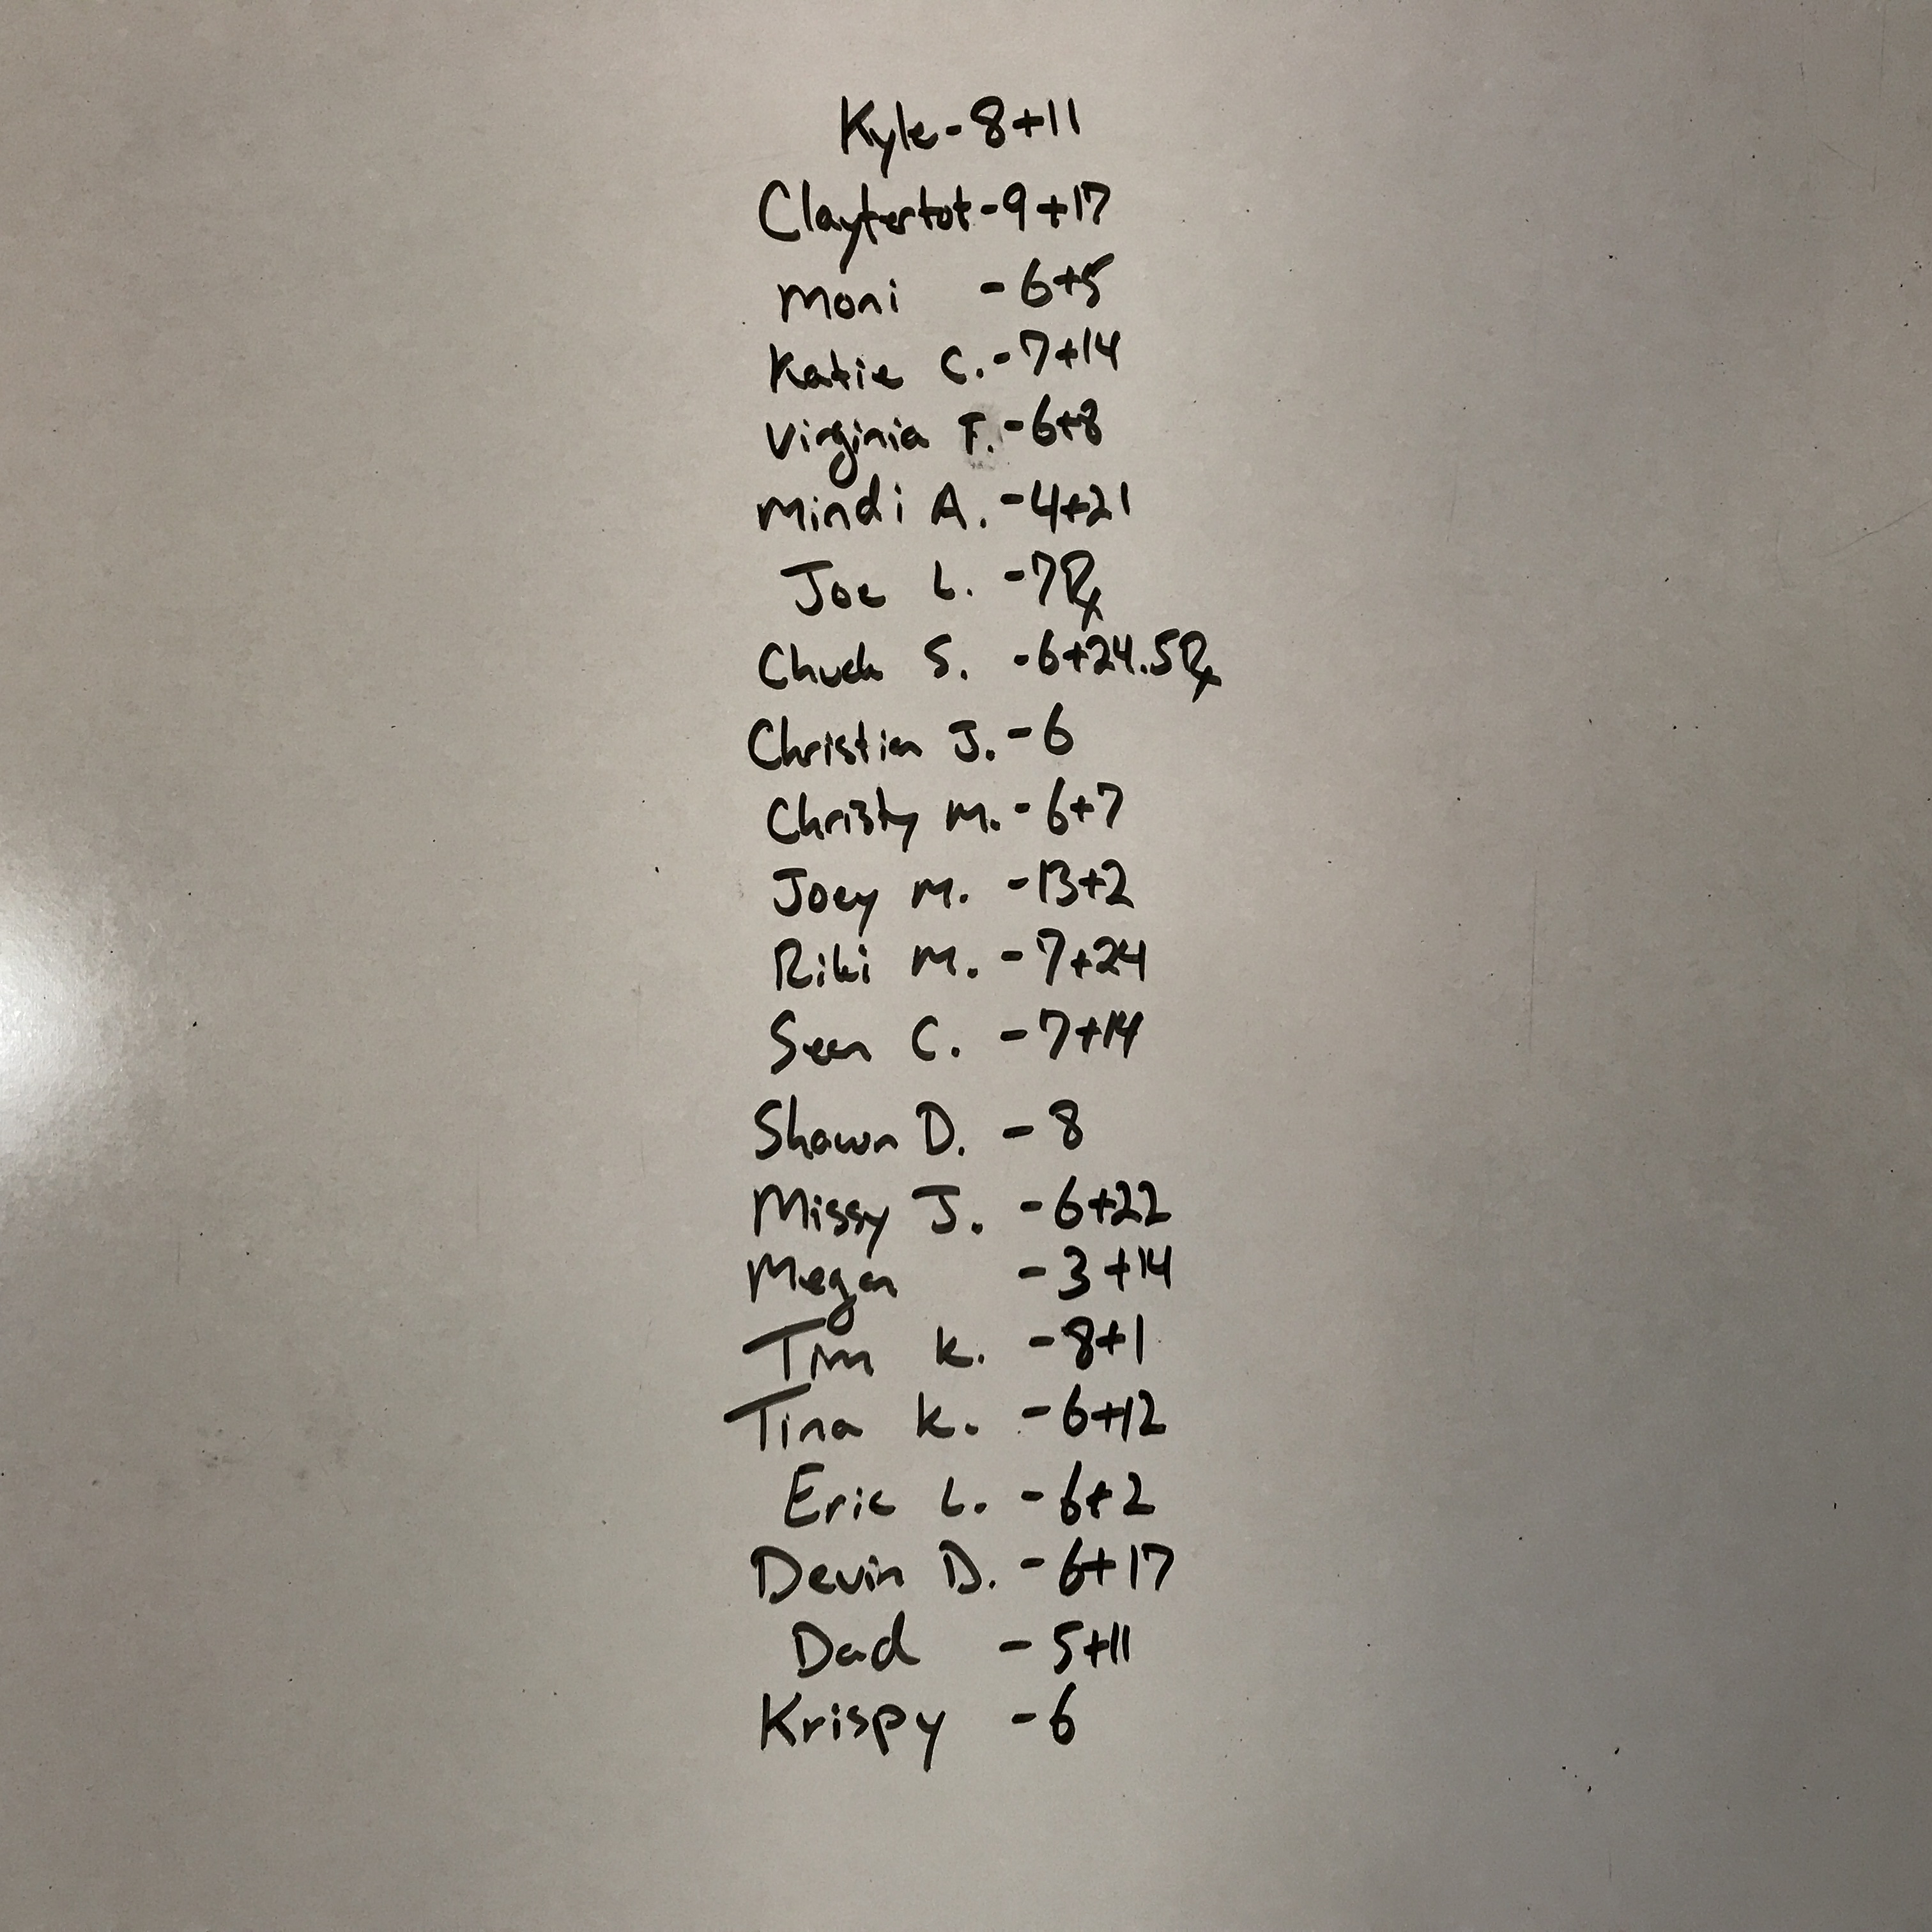 Kyle-8+11
Claytertot-9+17
Moni -6+5
Katie C.-7+14
Virginia F.-6+8
Mindi A.-4+21
Joe L. -7℞
Chuck S. -6+24.5℞
Christian J.-6
Christy M.-6+7
Joey M. -13+2
Riki M. -7+24
Sean C. -7+14
Shawn D. -8
Missy J. -6+22
Megan -3+14
Tim K. -8+1
Tina K. -6+12
Eric L. -6+2
Devin D. -6+17
Dad -5+11
Krispy -6